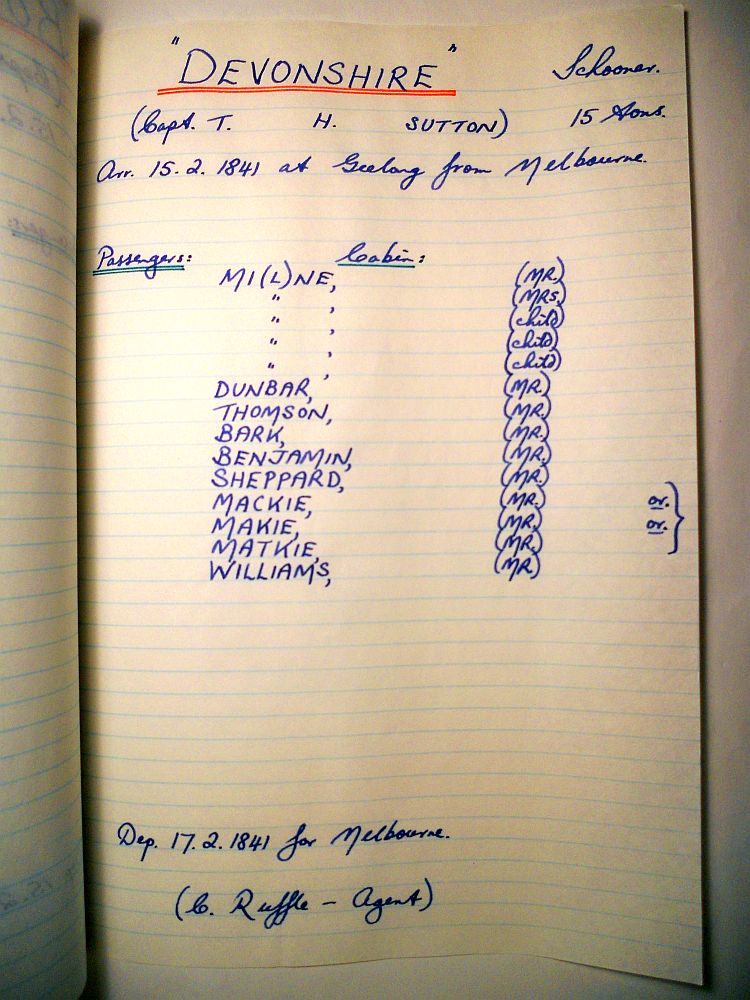 "DEVONSHIRE" Schooner.
(Capt. T. H. SUTTON) 15 Tons.
Arr. 15.2.1841 at Geelong from Melbourne.
Passengers: Cabin:
MI(L)NE, (MR.)
" , (MRS.)
" , (child)
" , (child)
" , (child)
DUNBAR, (MR.)
THOMSON, (MR.)
BARK, (MR.)
BENJAMIN, (MR.)
SHEPPARD, (MR.)
MACKIE, (MR.) or. }
MAKIE, (MR.) or.
MATKIE, (MR.)
WILLIAMS, (MR.)
Dep. 17.2.1841 for Melbourne.
(C. Ruffle - Agent)